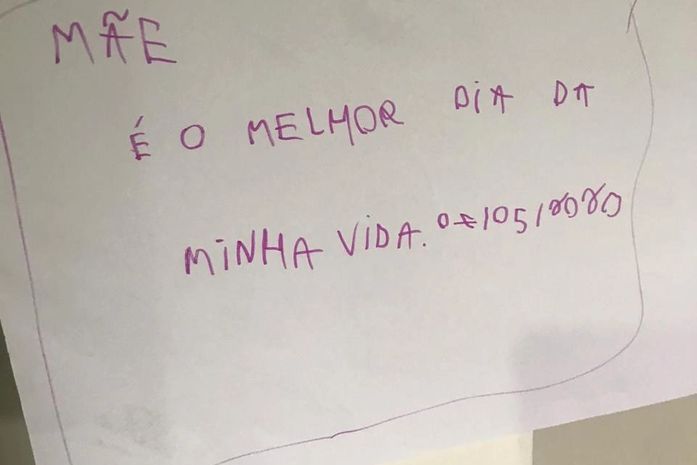 MÃE
É O MELHOR DIA DA
MINHA VIDA. 07/05/2020